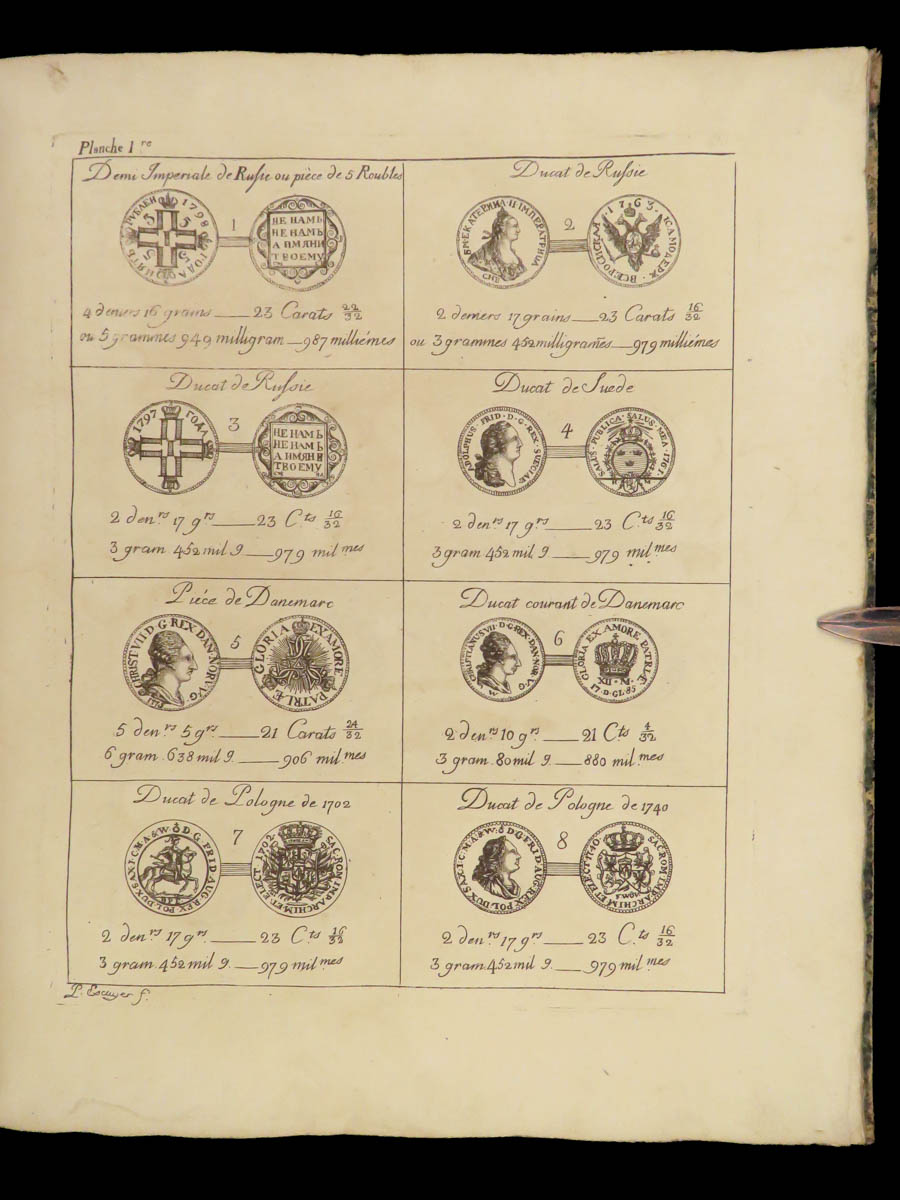 Planche 1.re
Demi Imperiale de Rufsie ou pièce de 5 Roubles
ПЯТЬ РУБЛЕЙ 1798 ГОДА
5 5 5 5
1
НЕ НАМЪ
НЕ НАМЪ
А ИМЯНИ
ТВОЕМУ
4 deniers 16 grains — 23 Carats 22/32
ou 5 grammes 949 milligram — 987 milliémes
Ducat de Rufsie
ЕКАТЕРИНА II ІМПЕРАТРИЦА
СПБ
2
1763.
ІСАМОДЕРЖ. ВСЕРОСІСКАЯ
2 deniers 17 grains — 23 Carats 16/32
ou 3 grammes 452 milligram̄es — 979 milliémes
Ducat de Rufsie
1797 ГОДА
3
НЕ НАМЪ
НЕ НАМЪ
А ИМЯНИ
ТВОЕМУ
2 den.rs 17 g.rs — 23 C.ts 16/32
3 gram 452 mil g. — 979 mil.mes
Ducat de Suede
ADOLPHUS · FRID · D · G · REX · SUECIAE
4
SALUS · PUBLICA · SALUS · MEA · 1761
2 den.rs 17 g.rs — 23 C.ts 16/32
3 gram 452 mil g. — 979 mil.mes
Piéce de Danemarc
CHRIST VII D · G · REX · DAN · NOR · V · G
5
GLORIA EX AMORE PATRIÆ
5 den.rs 5 g.rs — 21 Carats 24/32
6 gram. 638 mil g. — 906 mil.mes
Ducat courant de Danemarc
CHRISTIANUS VII · D · G · REX · DAN · NOR · V · G
W
6
GLORIA EX AMORE PATRIÆ
XII · M ·
17 · D · CL · 85
2 den.rs 10 g.rs — 21 C.ts 4/32
3 gram. 80 mil g. — 880 mil.mes
Ducat de Pologne de 1702
D.G. FRID. AUG. REX. POL. DUX SAX. I. C. M. A & W.
7
1702. SAC. ROM. IMP. ARCHIM. ET ELECT
2 den.rs 17 g.rs — 23 C.ts 16/32
3 gram 452 mil g. — 979 mil.mes
Ducat de Pologne de 1740
D.G. FRID. AUG. REX POL. DUX SAX. I. C. M. A & W.
8
SAC. ROM. IMP. ARCHIM. ET ELECT 1740
FWôF
2 den.rs 17 g.rs — 23 C.ts 16/32
3 gram. 452 mil g. — 979 mil.mes
P. Escuyer f.